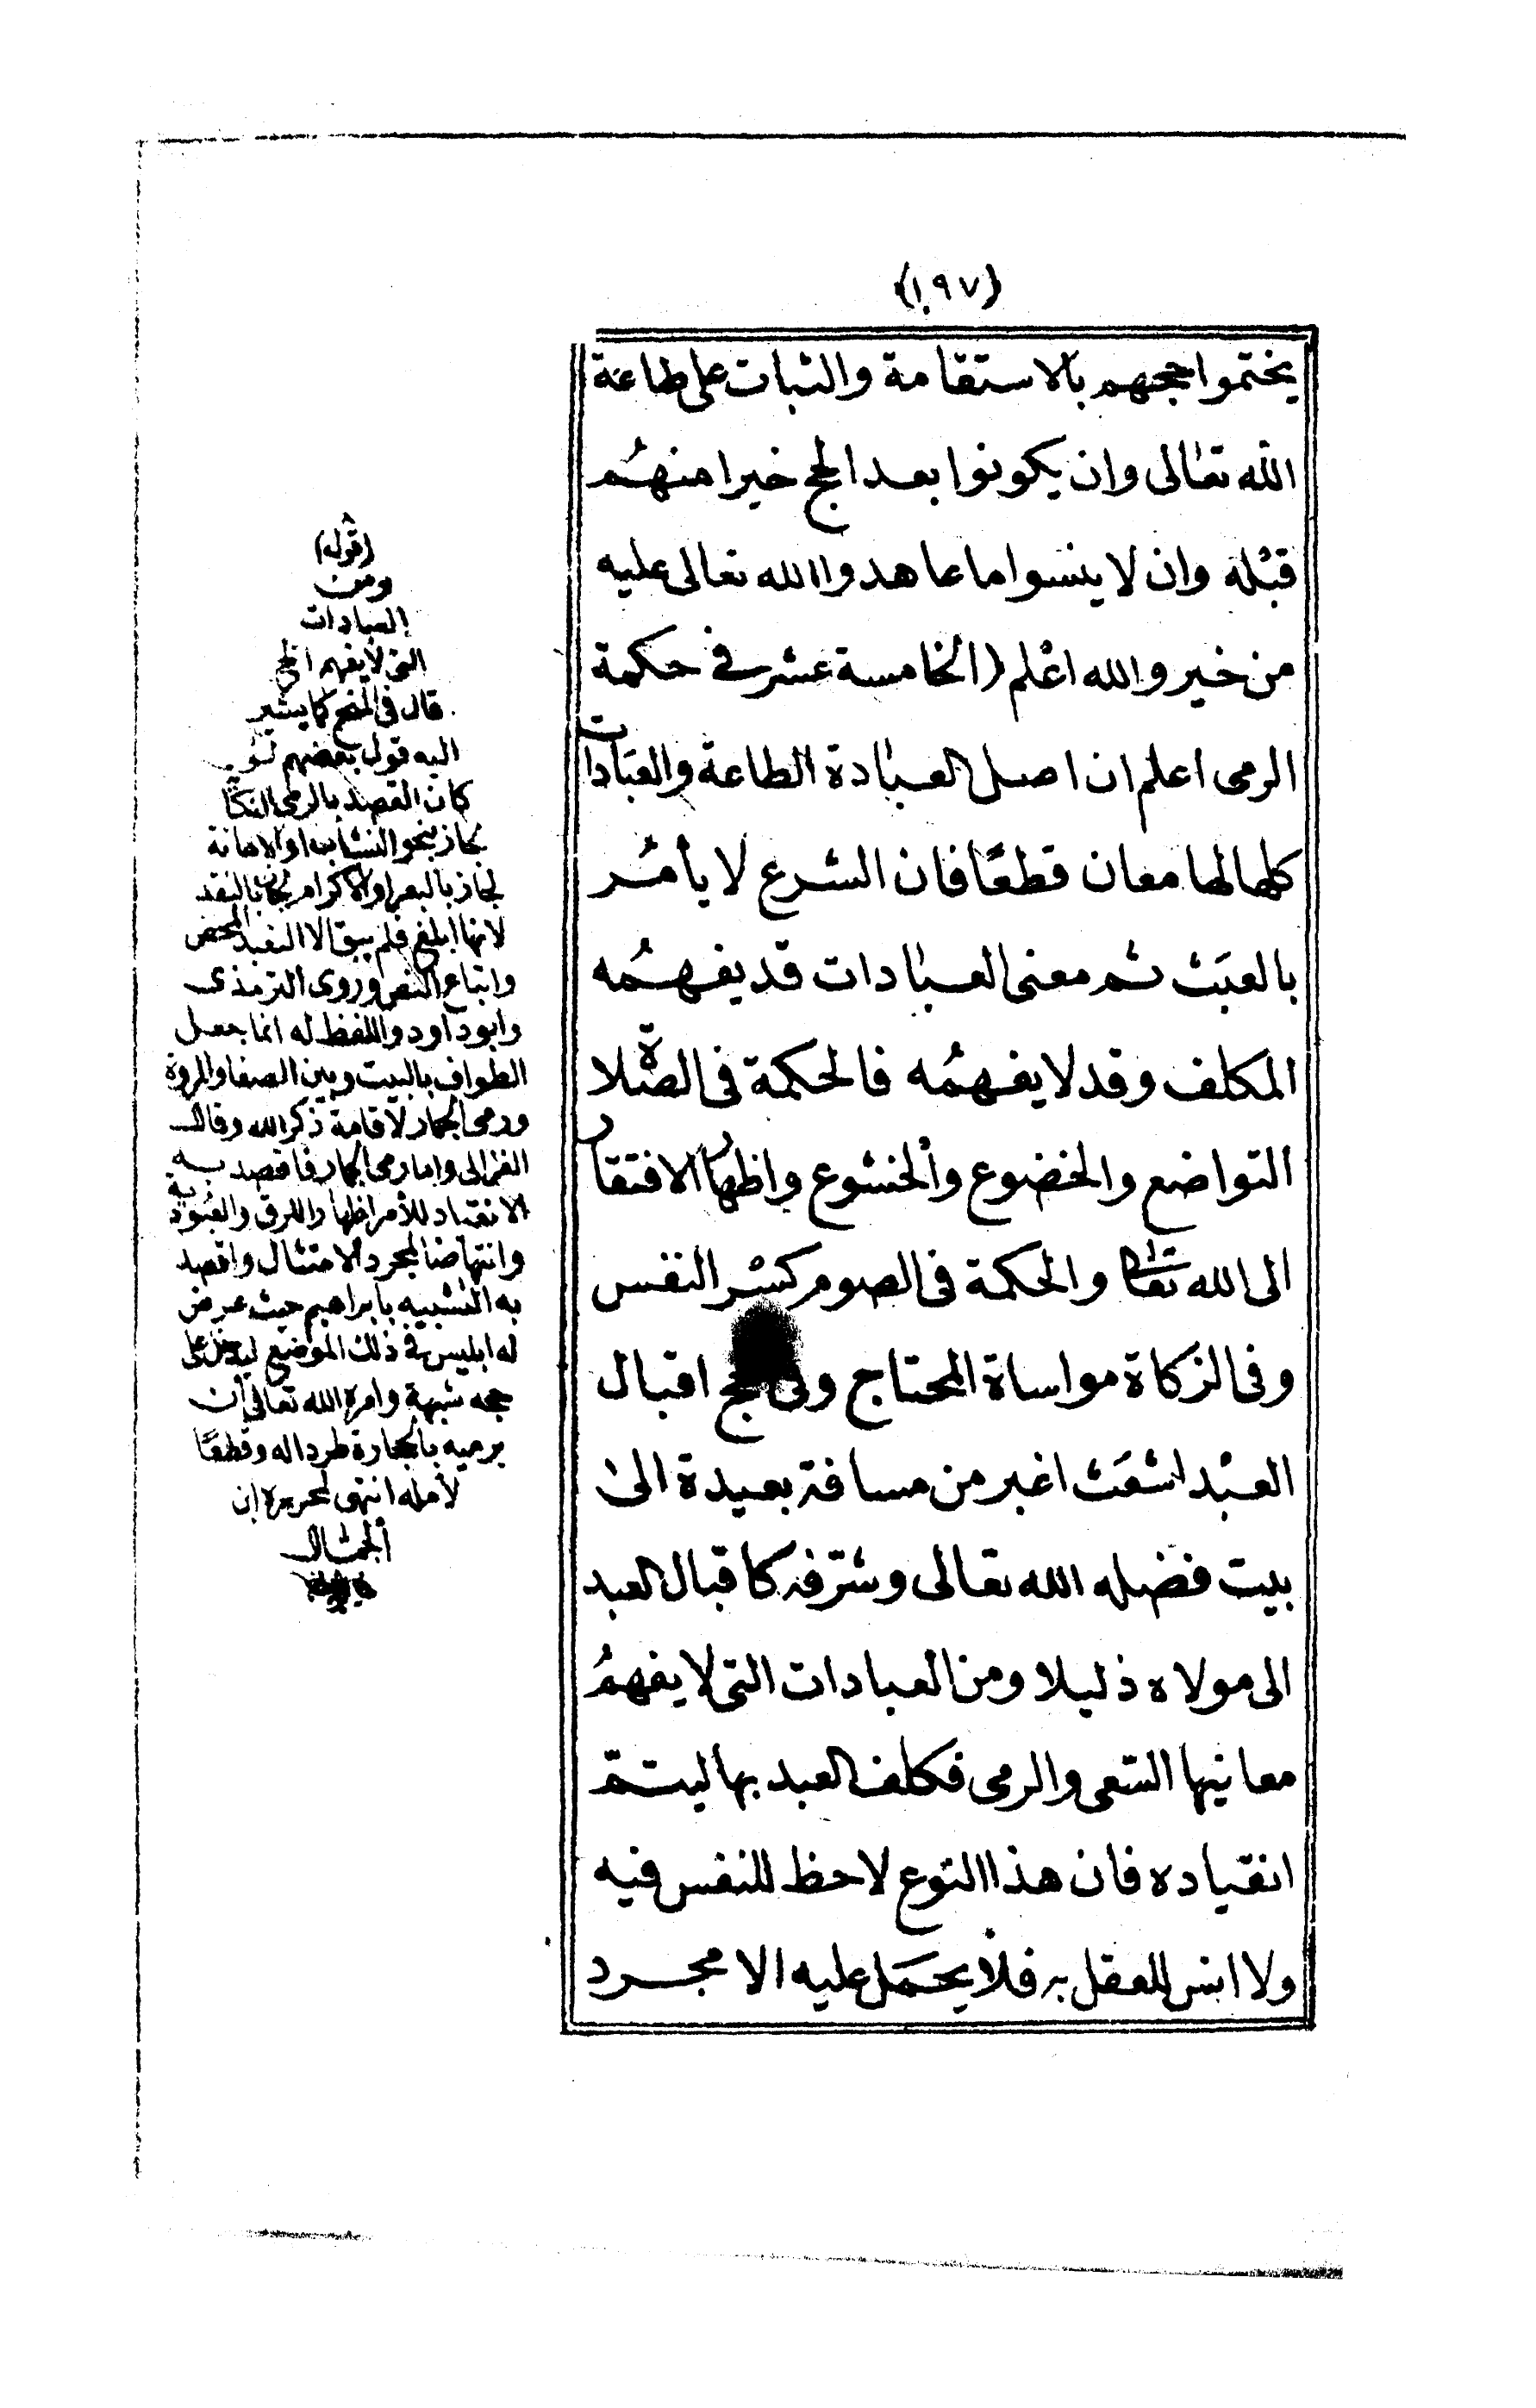 (١٩٧)
يختموا حجهم بالاستقامة والثبات على طاعة
الله تعالى وان يكونوا بعد الحج خيرا منهم
قبله وان لا ينسوا ما عاهدوا الله تعالى عليه
من خير والله اعلم (الخامسة عشر في حكمة
الرمى اعلم ان اصل العبادة الطاعة والعبادات
كلها لها معان قطعًا فان الشرع لا يأمر
بالعبث ثم معنى العبادات قد يفهمه
المكلف وقد لا يفهمه فالحكمة فى الصلاة
التواضع والخضوع والخشوع واظهار الافتقار
الى الله تعالى والحكمة فى الصوم كسر النفس
وفى الزكاة مواساة المحتاج وفى الحج اقبال
العبد اشعث اغبر من مسافة بعيدة الى
بيت فضله الله تعالى وشرّفه كاقبال العبد
الى مولاه ذليلا ومن العبادات التى لا يفهم
معانيها السّعى والرمى فكلف العبد بها ليتمّ
انقياده فان هذا النّوع لا حظ للنفس فيه
ولا انس للعقل به فلا يحمل عليه الا مجرد
(قوله)
ومن
العبادات
التى لا يفهم الخ
قال فى المنح كما يشير
اليه قول بعضهم لو
كان القصد بالرمى النكا
لجاز بنحو النشاب او الاهانة
لجاز بالبعر او الاكرام لجاز بالنقد
لانها ابلغ فلم يبق الا التعبد المحض
واتباع النص وروى الترمذى
وابو داود واللفظ له انما جعل
الطواف بالبيت وبين الصفا والمروة
ورمى الجمار لاقامة ذكر الله وقال
الغزالى واما رمى الجمار فاقصد به
الانقياد للأمر اظهارا للرق والعبودية
وانتهاضا لمجرد الامتثال واقصد
به التشبيه بابراهيم حيث عرض
له ابليس فى ذلك الموضع ليدخل على
حجه شبهة وامره الله تعالى ان
يرميه بالحجارة طردا له وقطعًا
لأمله انتهى لمحرره ابن
الجمال